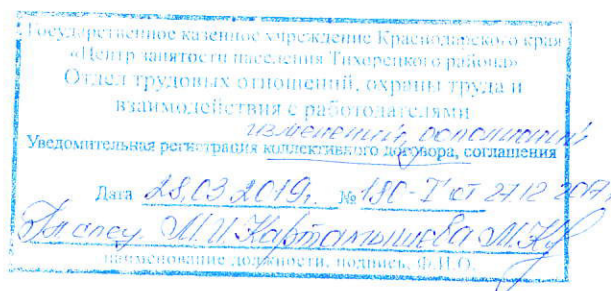 Государственное казенное учреждение Краснодарского края
«Центр занятости населения Тихорецкого района»
Отдел трудовых отношений, охраны труда и
взаимодействия с работодателями
изменений, дополнений
Уведомительная регистрация коллективного договора, соглашения
Дата 28.03.2019г. № 180-I от 27.12.2017г
М.И. Картамышева
наименование должности, подпись, Ф.И.О.